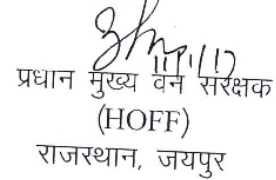 प्रधान मुख्य वन संरक्षक
(HOFF)
राजस्थान, जयपुर